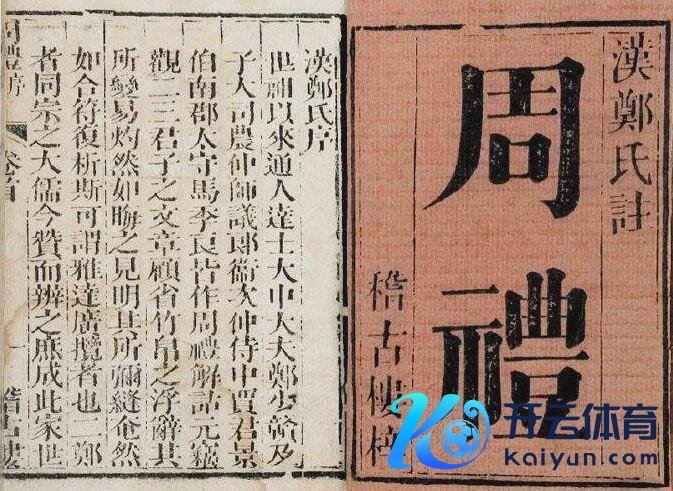 漢鄭氏註
周禮
稽古樓梓
漢鄭氏序
世祖以來通人達士大中大夫鄭少贛及
子大司農仲師議郎衛次仲侍中賈君景
伯南郡太守馬季良皆作周禮解詁元竊
觀二三君子之文章顧省竹帛之浮辭其
所變易灼然如晦之見明其所彌縫奄然
如合符復析斯可謂雅達廣攬者也二鄭
者同宗之大儒今贊而辨之庶成此家世
周禮序
卷首
一
稽古樓
开云体育
Kaiyun.com